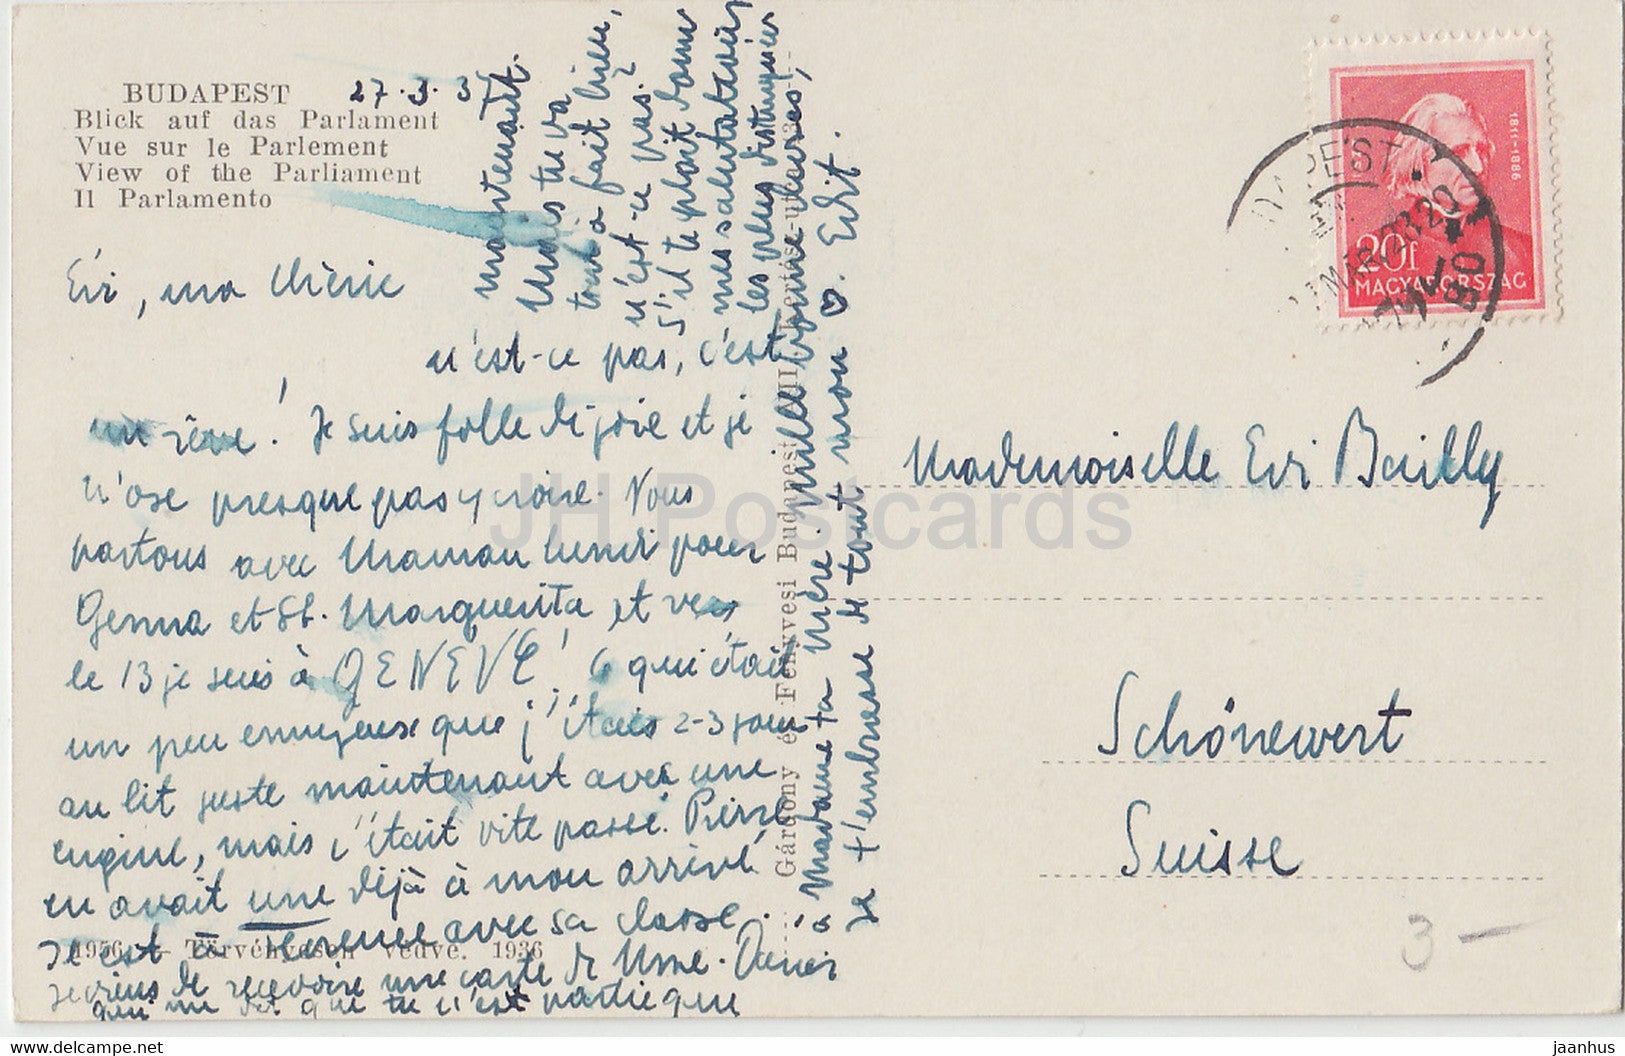 BUDAPEST 27.3.
Blick auf das Parlament
Vue sur le Parlement
View of the Parliament
Il Parlamento
Evi, ma chérie
n'est-ce pas, c'est
un rêve! Je suis folle de joie et je
n'ose presque pas y croire. Nous
partons avec Maman lundi pour
Genua et St. Marguerita et vers
le 13 je suis à GENEVE! Ce qui était
un peu ennuyeux que j'étais 2-3 jours
au lit juste maintenant avec une
engine, mais c'était vite passé. Pierre
en avait une déjà à mon arrivé.
Je est à avec sa classe.
Je viens de recevoire une carte de Mme. Danis
qui me dit que tu n'est partie que
maintenant.
Mais tu va
tout à fait bien,
n'est-ce pas?
S'il te plait donne
mes salutations
les plus distinguées
à Madame ta Mère. Mille bonne
Je t'embrasse de tout mon ♡. Edit.
Gárdony és Fényvesi Budapest VII Kertész-utca 3
1956 — Törvényesen védve. 1936
1811-1886
20f
MAGYARORSZÁG
BUDAPEST
Mademoiselle Evi Bailly
Schönewert
Suisse
3 —
JH Postcards
www.delcampe.net
jaanhus